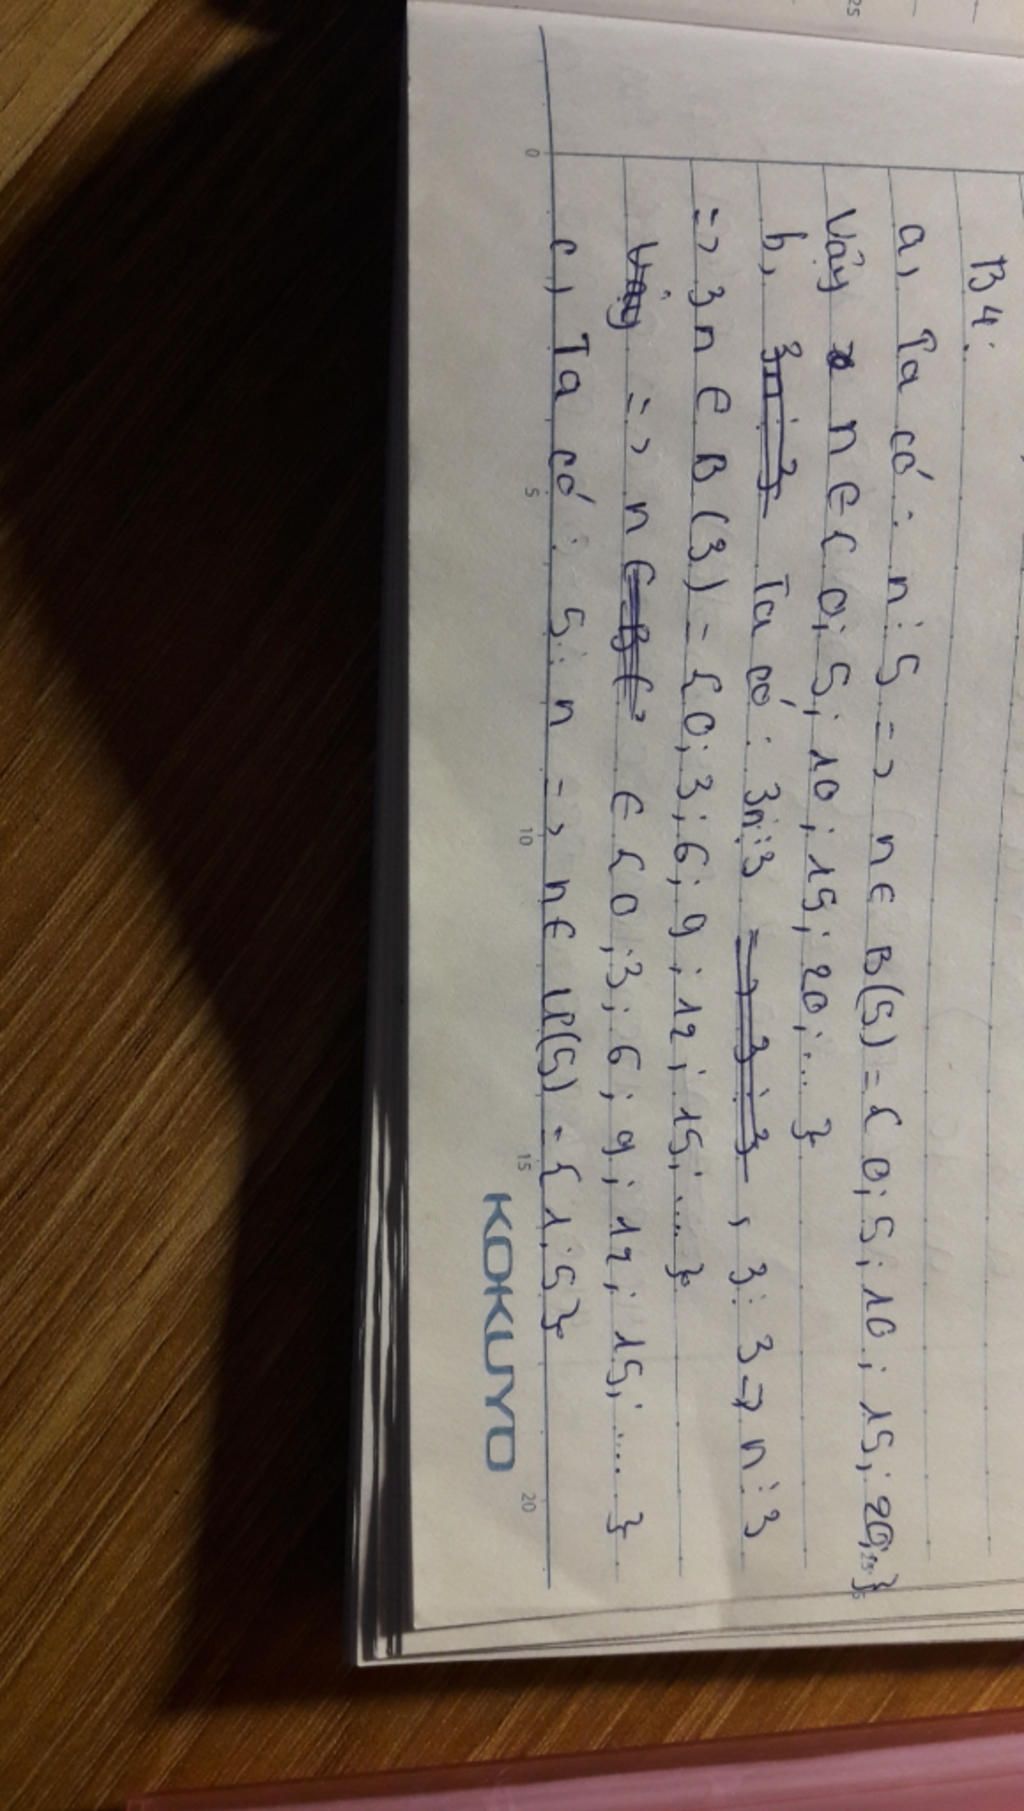 B4:
a, Ta có: n⋮5 => n ∈ B(5) = { 0; 5; 10; 15; 20; ...}
Vậy n ∈ { 0; 5; 10; 15; 20; ... }
b, 3n⋮3 Ta có: 3n⋮3 => 3⋮3, 3⋮3 => n⋮3
=> 3n ∈ B(3) = {0; 3; 6; 9; 12; 15; ... }
Vậy => n ∈ B( ∈ {0; 3; 6; 9; 12; 15; .... }
c, Ta có: 5⋮n => n ∈ Ư(5) = {1; 5}
0 5 10 15 20
KOKUYO
25